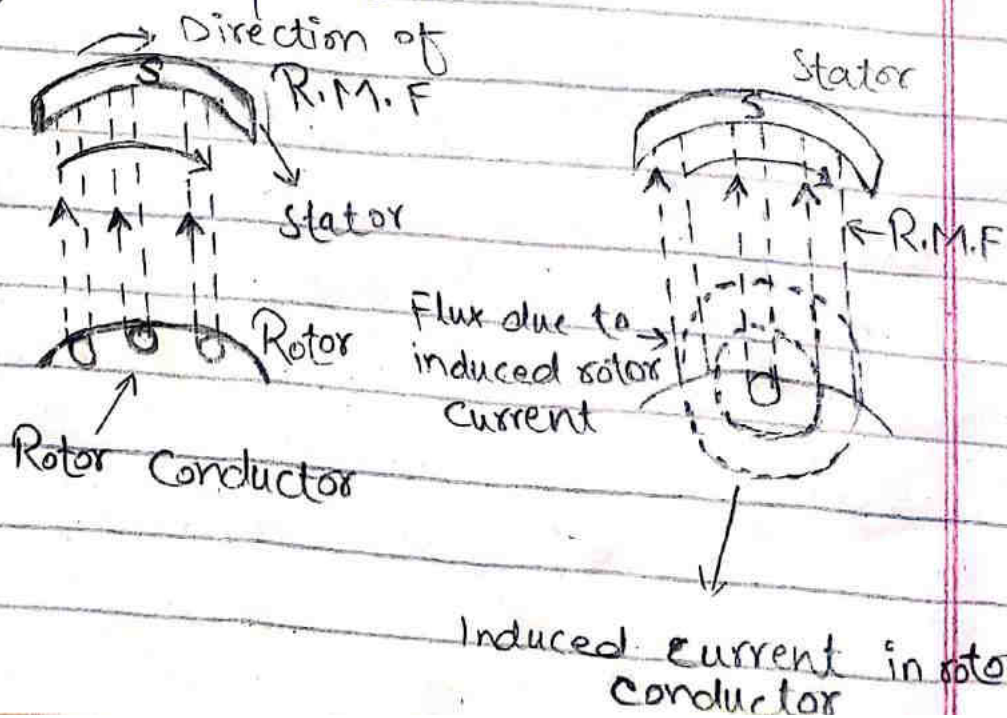 Direction of
R.M.F
S
Stator
Rotor
Rotor Conductor
Stator
S
R.M.F
Flux due to
induced rotor
current
Induced current in roto
conductor